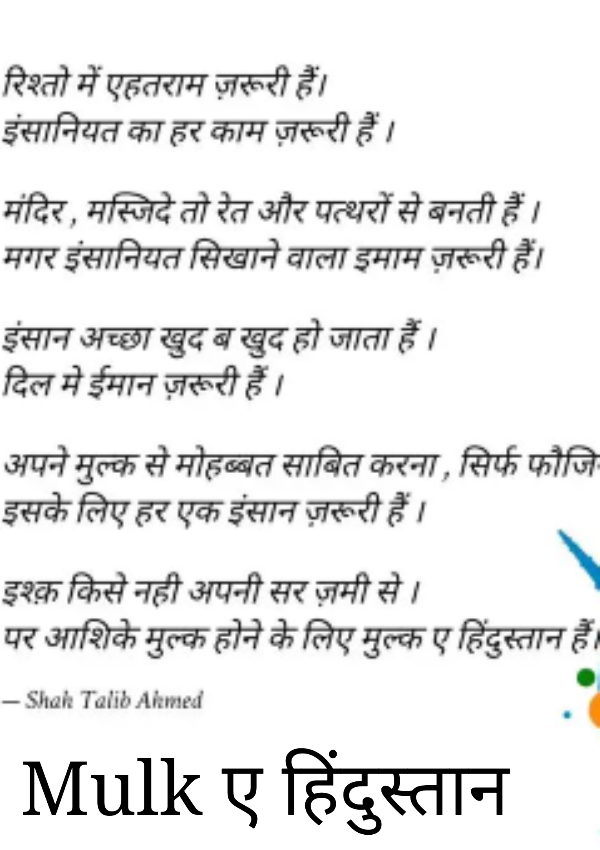 रिश्तो में एहतराम ज़रूरी हैं।
इंसानियत का हर काम ज़रूरी हैं ।
मंदिर , मस्जिदे तो रेत और पत्थरों से बनती हैं ।
मगर इंसानियत सिखाने वाला इमाम ज़रूरी हैं।
इंसान अच्छा खुद ब खुद हो जाता हैं ।
दिल मे ईमान ज़रूरी हैं ।
अपने मुल्क से मोहब्बत साबित करना , सिर्फ
इसके लिए हर एक इंसान ज़रूरी हैं ।
इश्क़ किसे नही अपनी सर ज़मी से ।
पर आशिके मुल्क होने के लिए मुल्क ए हिंदुस्तान हैं।
— Shah Talib Ahmed
Mulk ए हिंदुस्तान